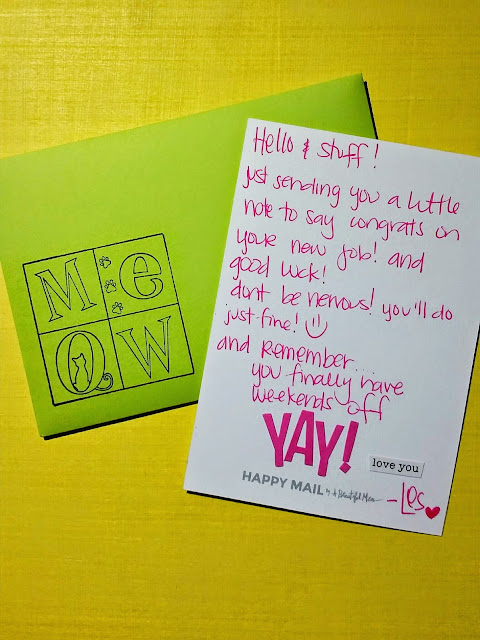 M e
O W
Hello & stuff!
just sending you a little
note to say congrats on
your new job! and
good luck!
dont be nervous! you'll do
just fine!
and Remember...
you finally have
weekends off
YAY!
love you
HAPPY MAIL by A Beautiful Mess
-Les